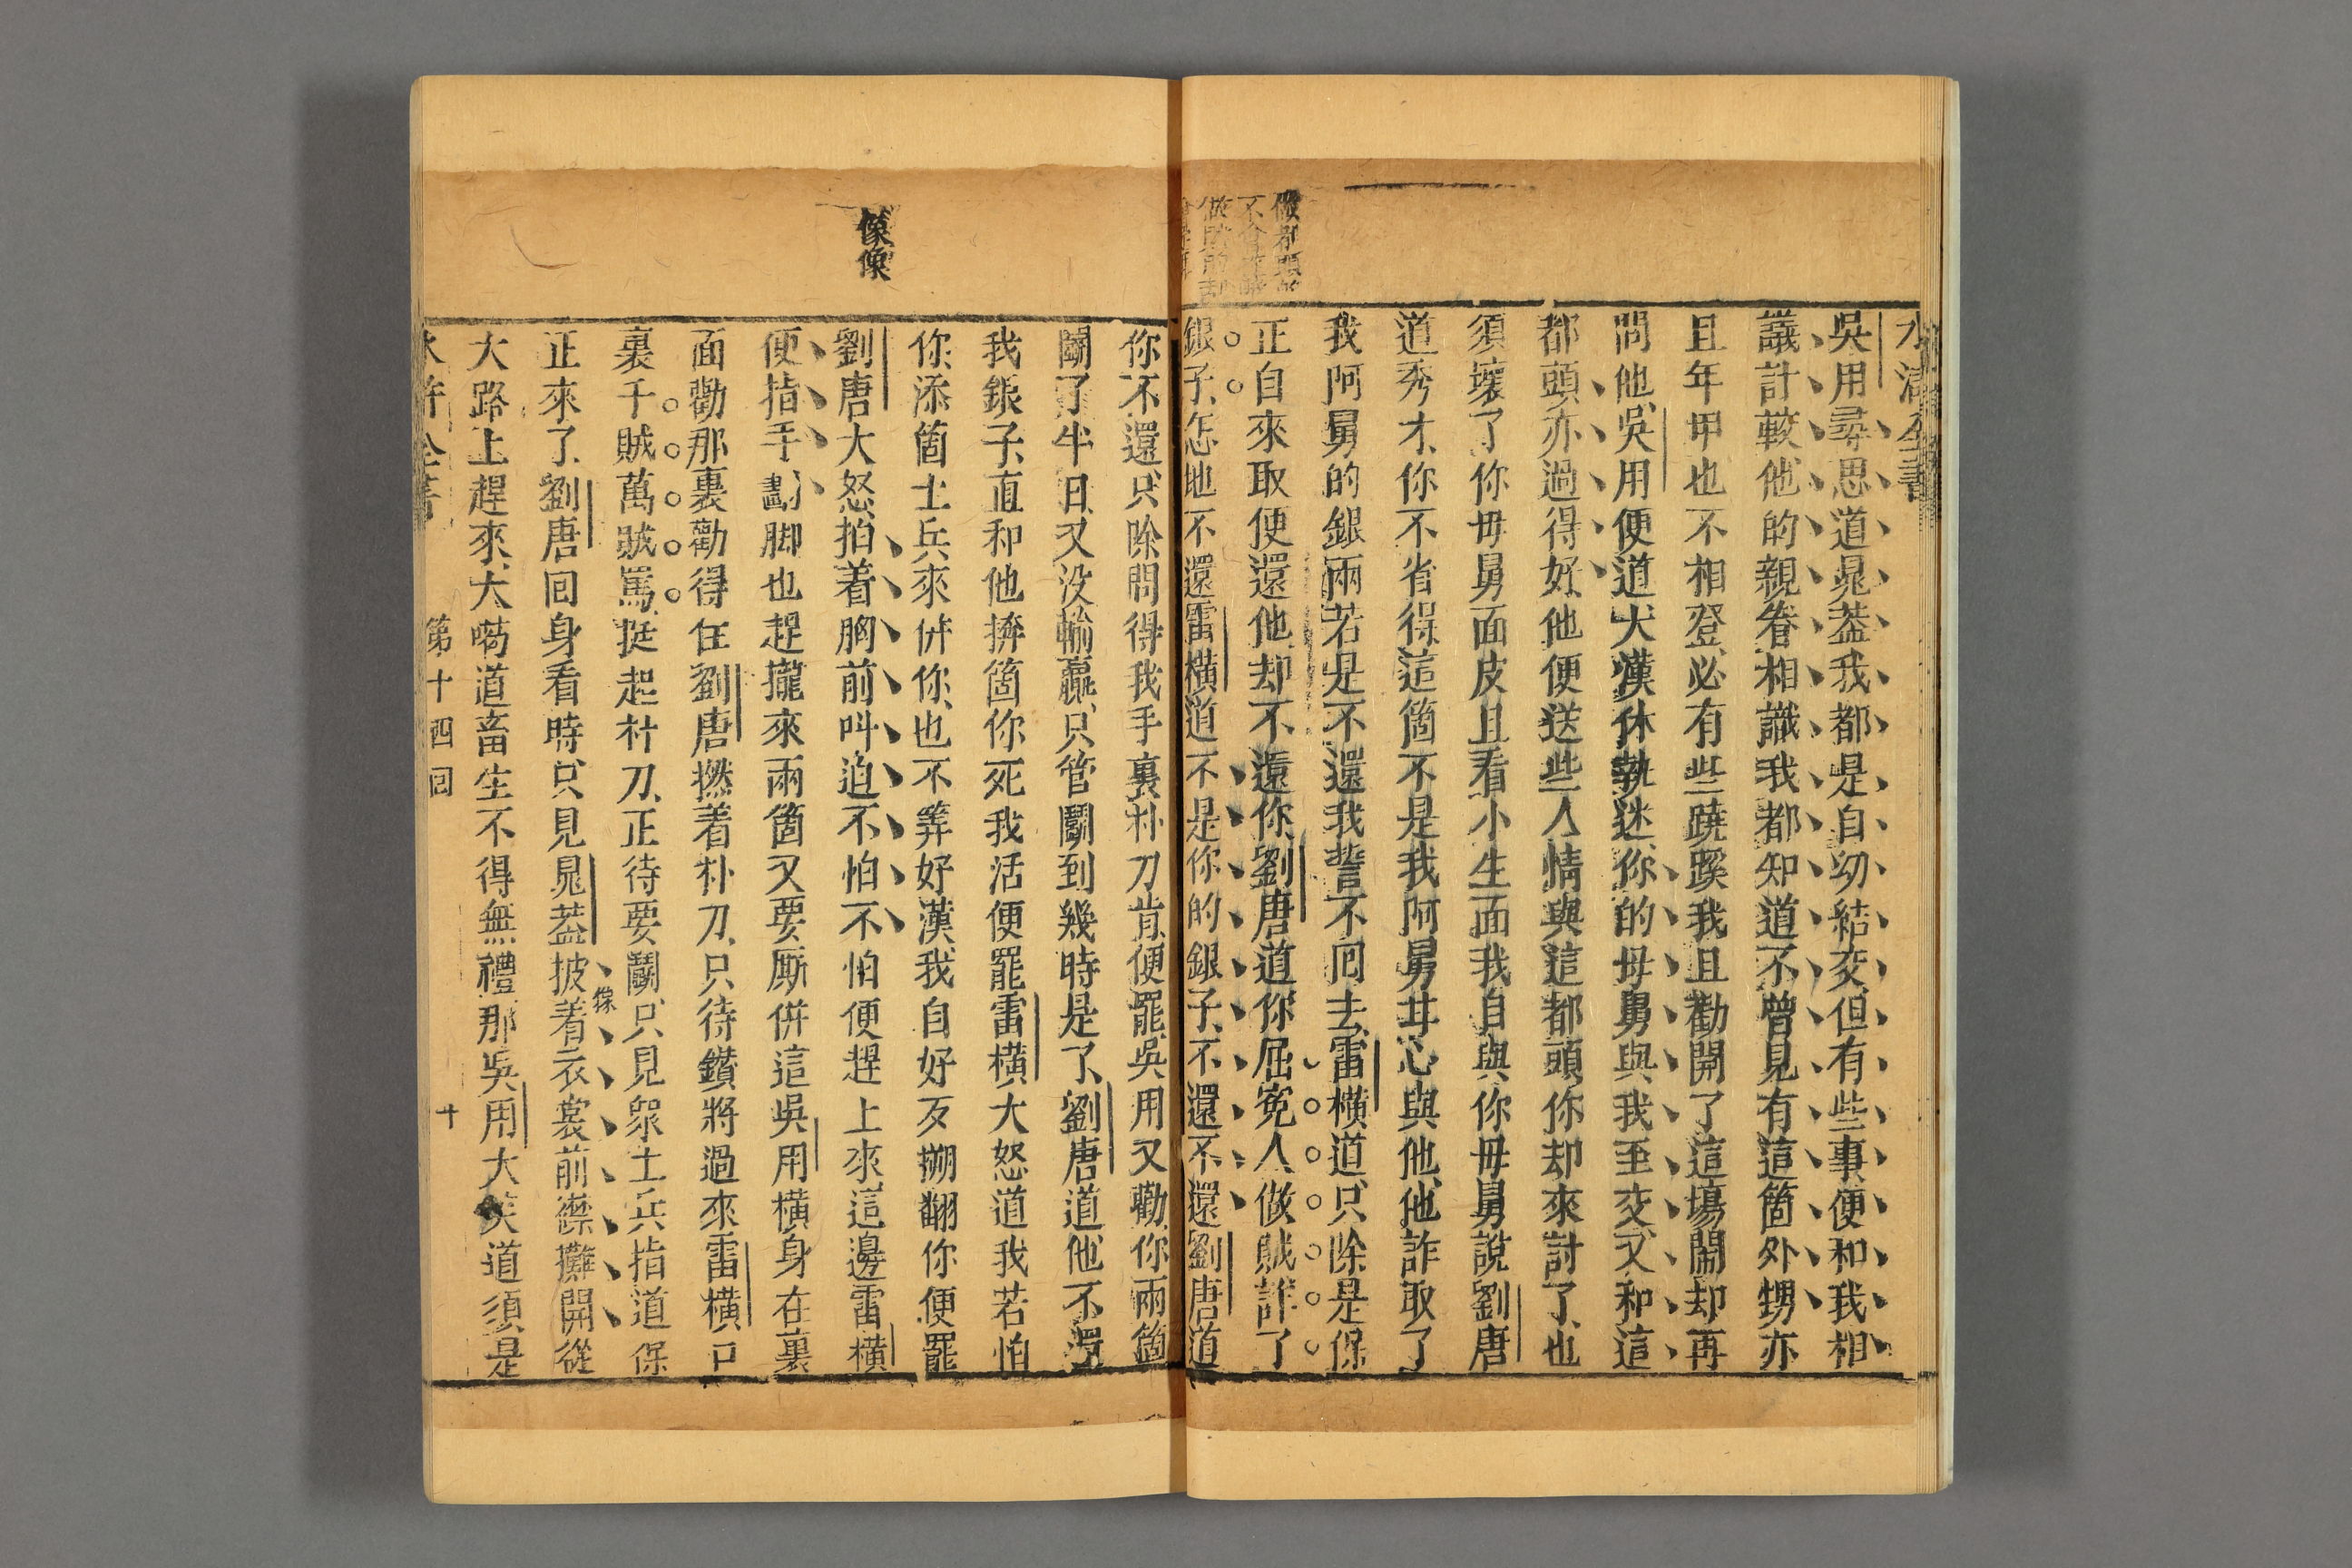 水滸全書
吳用尋思道晁葢我都是自㓜結交但有些事便和我相
議計較他的親眷相識我都知道不曾見有這箇外甥亦
且年甲也不相登必有些蹺蹊我且勸開了這塲鬧却再
問他吳用便道大漢休執迷你的母舅與我至交又和這
都頭亦過得好他便送些人情與這都頭你却來討了也
須壞了你母舅面皮且看小生面我自與你母舅說劉唐
道秀才你不省得這箇不是我阿舅甘心與他他詐取了
我阿舅的銀兩若是不還我誓不囘去雷橫道只除是保
正自來取便還他却不還你劉唐道你屈寃人做賊詐了
銀子怎地不還雷橫道不是你的銀子不還不還劉唐道
你不還只除問得我手裏朴刀肯便罷吳用又勸你兩箇
鬬了半日又没輸贏只管鬬到幾時是了劉唐道他不還
我銀子直和他拚箇你死我活便罷雷橫大怒道我若怕
你添箇士兵來併你也不筭好漢我自好歹搠翻你便罷
劉唐大怒拍着胸前叫道不怕不怕便趕上來這邊雷橫
便指手劃脚也趕攏來兩箇又要厮併這吳用橫身在裏
面勸那裏勸得住劉唐撚着朴刀只待鑽將過來雷橫口
裏千賊萬賊罵挺起朴刀正待要鬬只見衆士兵指道保
正來了劉唐回身看時只見晁葢披着衣裳前襟攤開從
像
大路上趕來大喝道畜生不得無禮那吳用大笑道須是
水滸全書 第十四回 十
像像